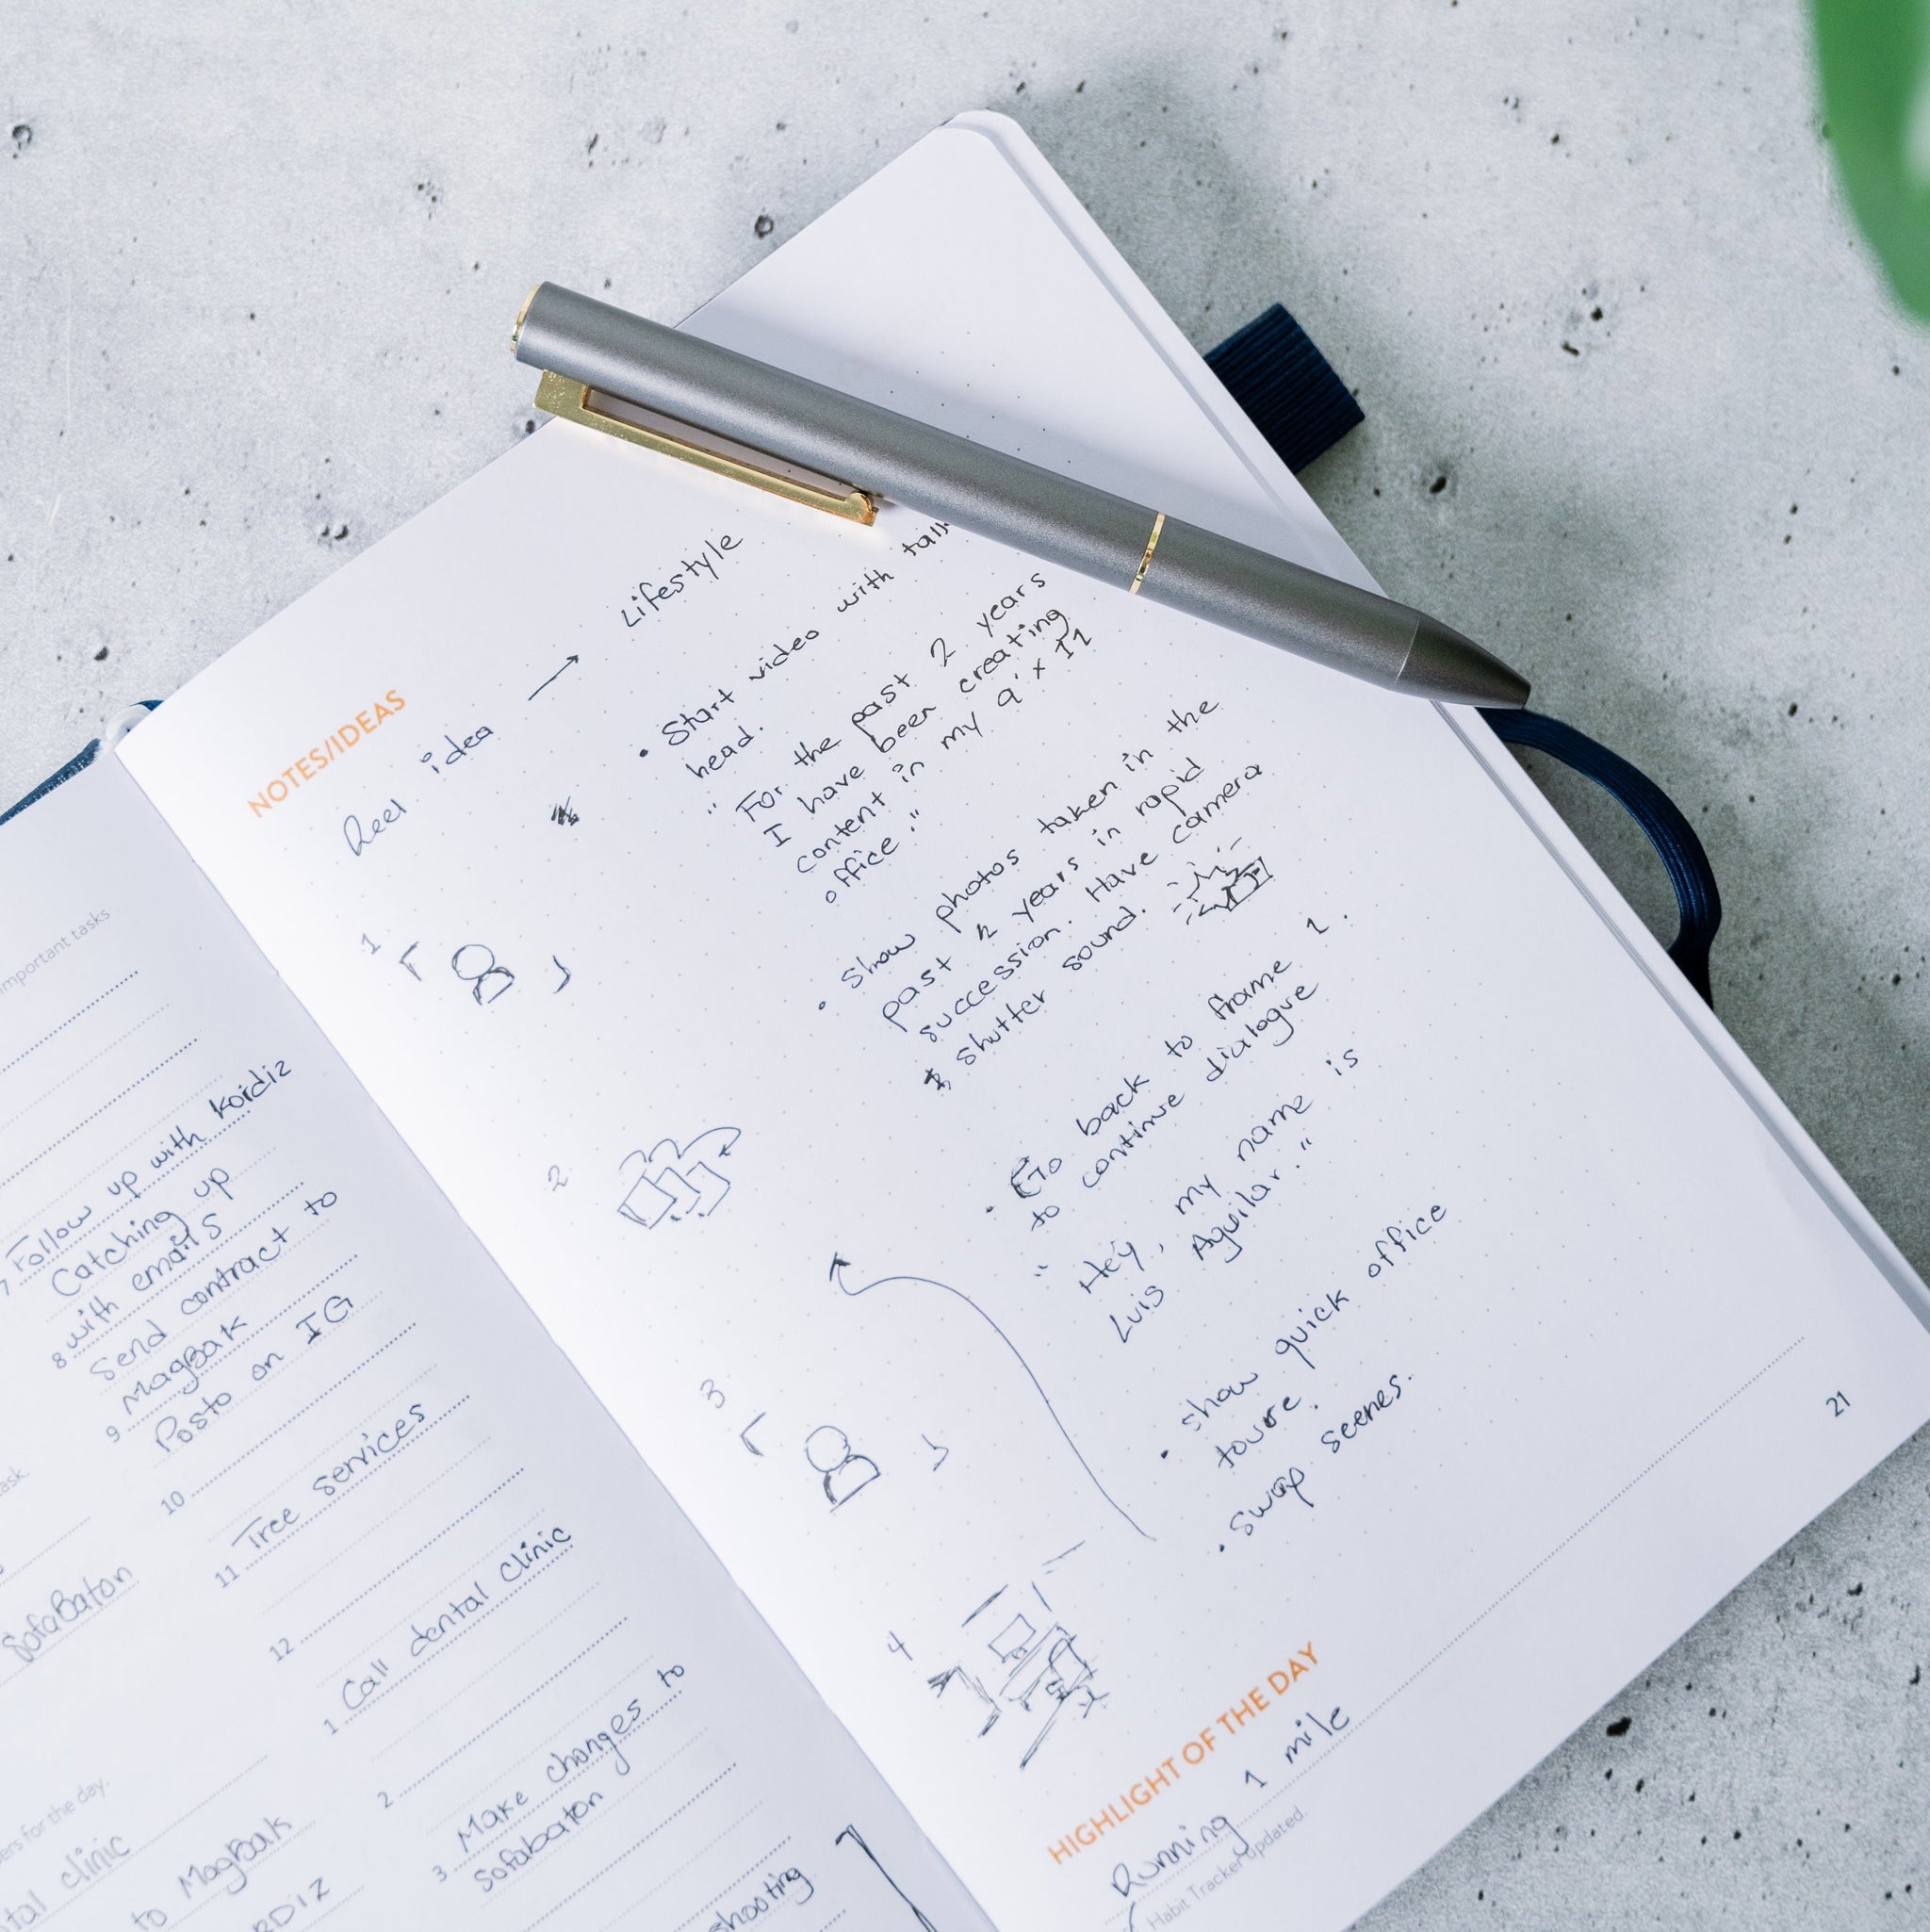 important tasks
7 Follow up with Kordiz
Catching up
8 with emails
Send contract to
9 MagBak
Posto on IG
10
11 Tree services
12
1 Call dental clinic
2
Make changes to
3 Sofabaton
shooting
task.
SofaBaton
for the day.
clinic
to MagBak
NOTES/IDEAS
Reel idea → Lifestyle
• Start video with
head.
" For the past 2 years
I have been creating
content in my 9' x 11
office."
1
• Show photos taken in the
past 2 years in rapid
succession. Have camera
shutter sound.
2
• Go back to frame 1.
to continue dialogue
" Hey, my name is
Luis Aguilar."
3
• show quick office
toure.
• swap scenes.
4
21
HIGHLIGHT OF THE DAY
Running 1 mile
Habit Tracker updated.